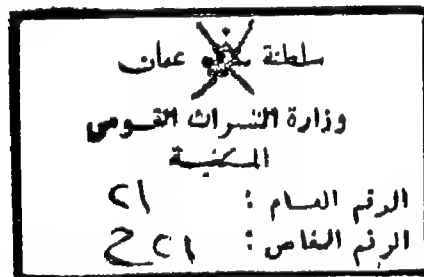 سلطنة عمان
وزارة التراث القومى
المكتبة
الرقم العام : ٢١
الرقم الخاص : ٢١ ح